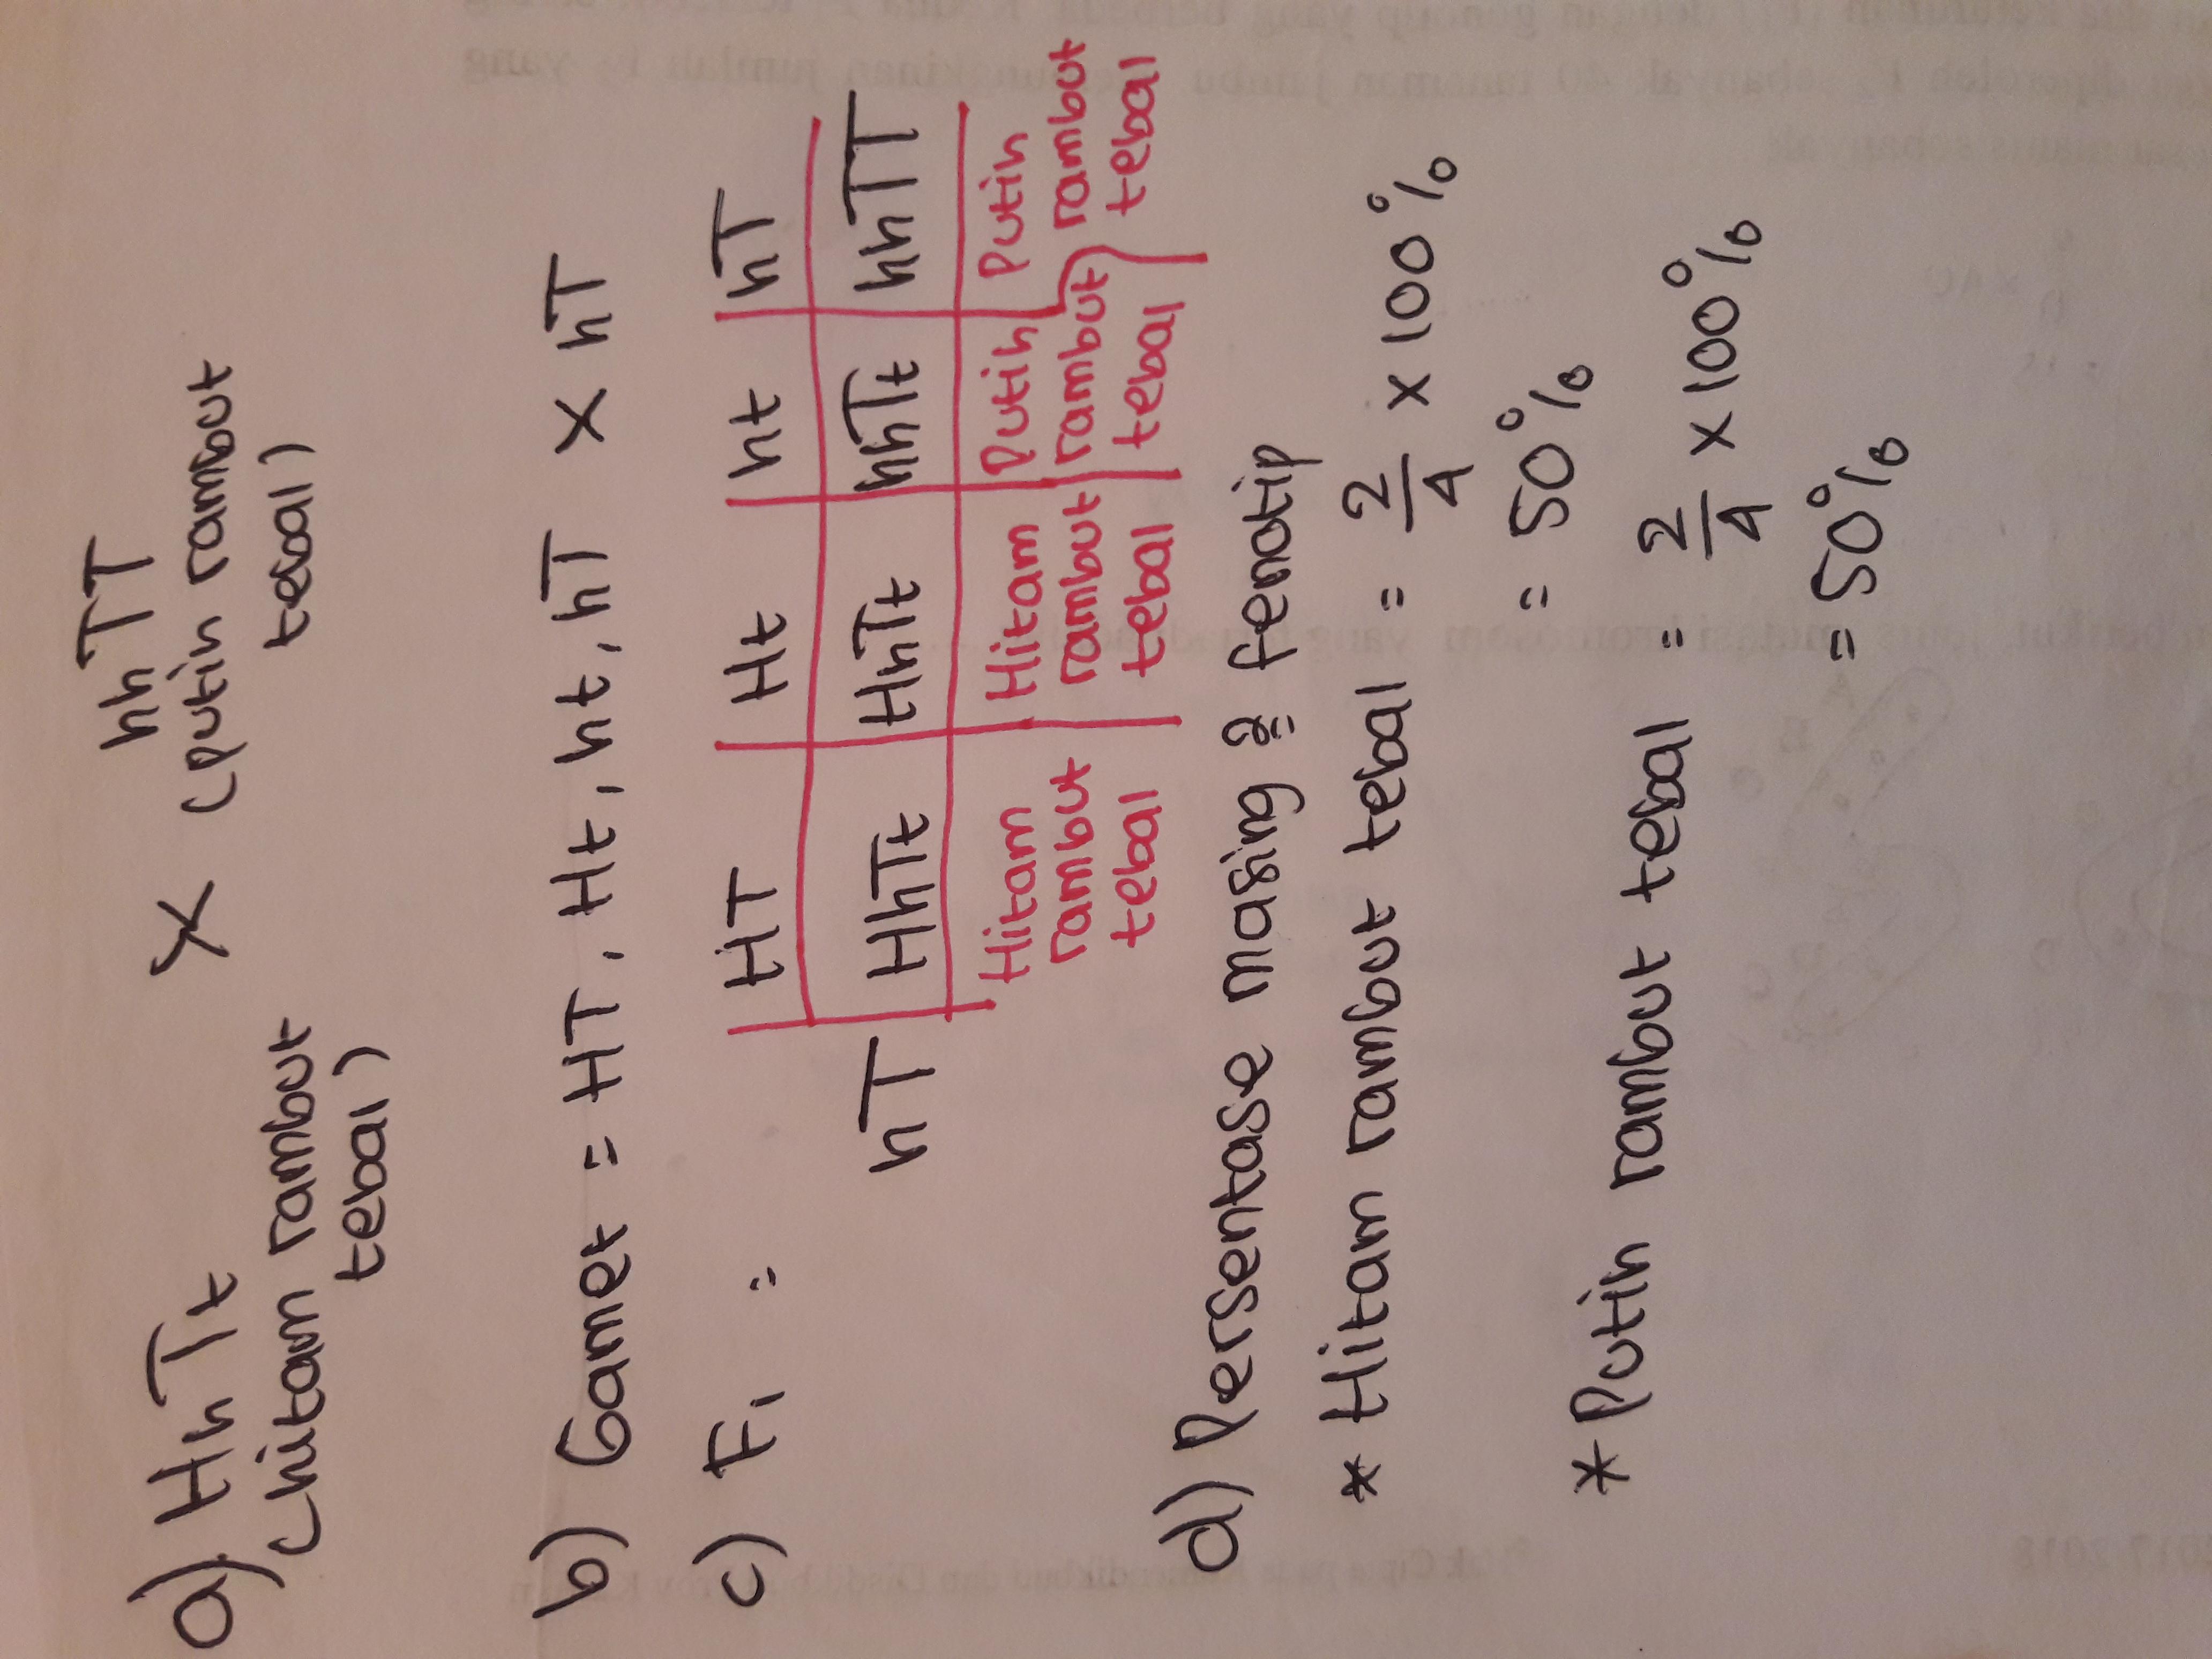 a) HhTt X hhTT
(hitam rambut (putih rambut
tebal) tebal)
b) Gamet = HT, Ht, ht, hT X hT
c) F1 =
HT Ht ht hT
hT HhTt HhTt hhTt hhTT
Hitam Hitam Putih Putih
rambut rambut rambut rambut
tebal tebal tebal tebal
d) Persentase masing² fenotip
* Hitam rambut tebal = 2/4 x 100%
= 50%
* Putih rambut tebal = 2/4 x 100%
= 50%